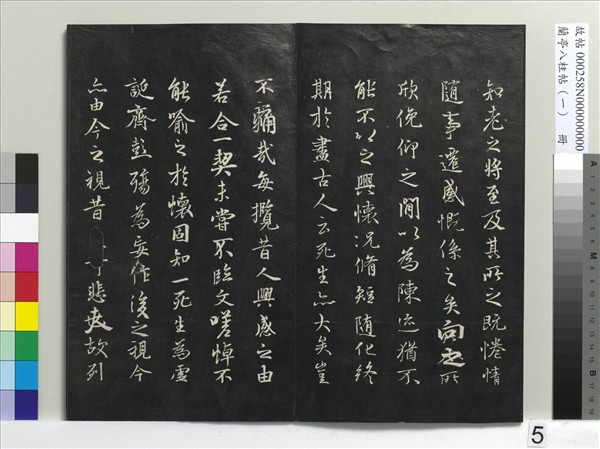 故帖 000258N000000000
蘭亭八柱帖（一） 冊
知老之將至及其所之既惓情
隨事遷感慨係之矣向之所
欣俛仰之閒以為陳迹猶不
能不以之興懷况脩短隨化終
期於盡古人云死生亦大矣豈
不痛哉每攬昔人興感之由
若合一契未嘗不臨文嗟悼不
能喻之於懷固知一死生為虛
誕齊彭殤為妄作後之視今
亦由今之視昔悲夫故列
5